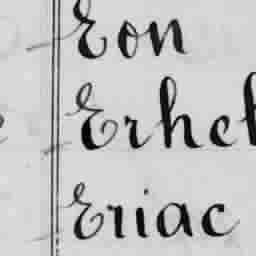 Eon
Erhel
Eriac